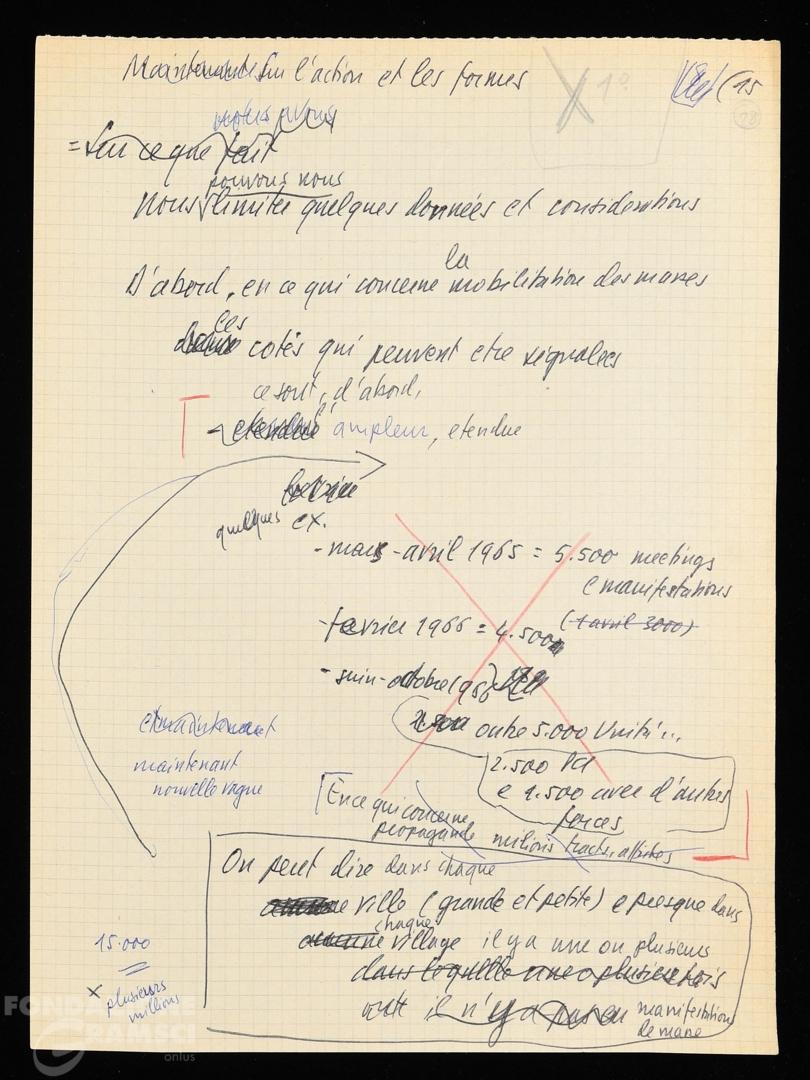 Maintenant Sur l'action et les formes
X 1°
(15
28
nous avons
= Sur ce que fait
pouvons nous
Nous limite quelques données et considerations
D'abord, en ce qui concerne la mobilitation des masses
ces
cotés qui peuvent etre signalees
ce sont, d'abord,
- etendue ampleur, etendue
quelques ex.
- mars-avril 1965 = 5.500 meetings
e manifestations
(1 avril 3000)
- fevrier 1966 = 4.500
- juin-octobre 1966
outre 5.000 Unità...
2.500 PCI
e 2.500 avec d'autres
forces
et maintenant
maintenant
nouvelle vague
En ce qui concerne
propagande millions tracts, affiches
On peut dire dans chaque
ville (grande et petite) e presque dans
chaque
village il y a une ou plusieurs
dans lequelle une o plusieurs fois
il n'y a pas eu manifestations
de masse
15.000
x plusieurs
millions
FONDAZIONE
GRAMSCI
onlus